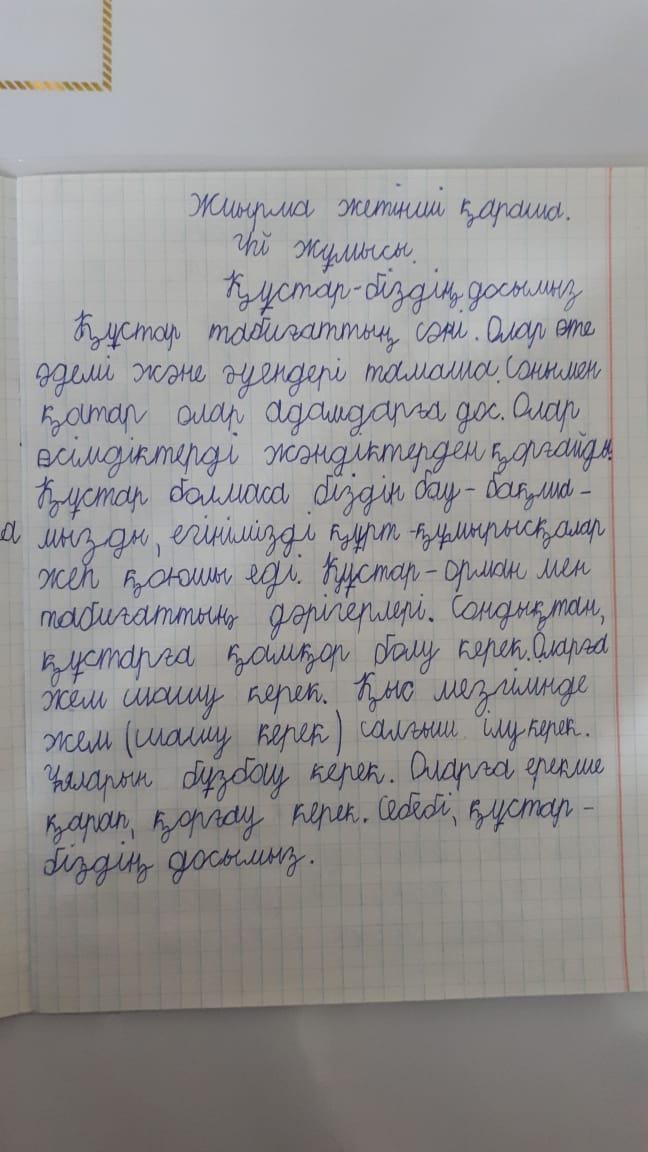 Жиырма жетінші қараша.
Үй жұмысы.
Құстар-біздің досымыз
Құстар табиғаттың сәні. Олар өте
әдемі және әуендері тамаша. Сонымен
қатар олар адамдарға дос. Олар
өсімдіктерді жәндіктерден қорғайды.
Құстар болмаса біздің бау-бақша-
мызды, егінімізді құрт-құмырысқалар
жеп қоюшы еді. Құстар-орман мен
табиғаттың дәрігерлері. Сондықтан,
құстарға қамқор болу керек. Оларға
жем шашу керек. Қыс мезгілінде
жем (шашу керек) салғыш ілу керек.
Ұяларын бұзбау керек. Оларға ерекше
қарап, қорғау керек. Себебі, құстар-
біздің досымыз.
а